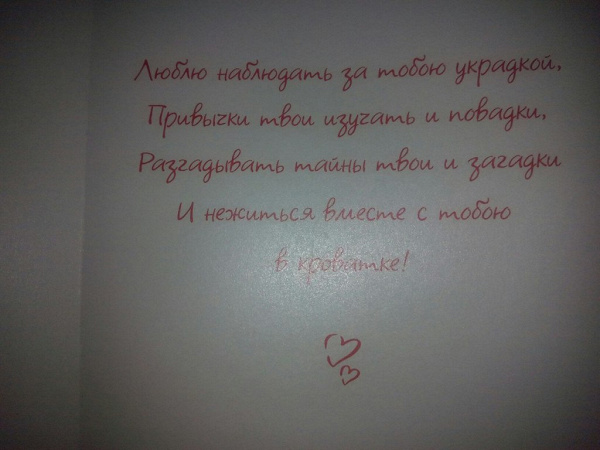 Люблю наблюдать за тобою украдкой,
Привычки твои изучать и повадки,
Разгадывать тайны твои и загадки
И нежиться вместе с тобою
в кроватке!